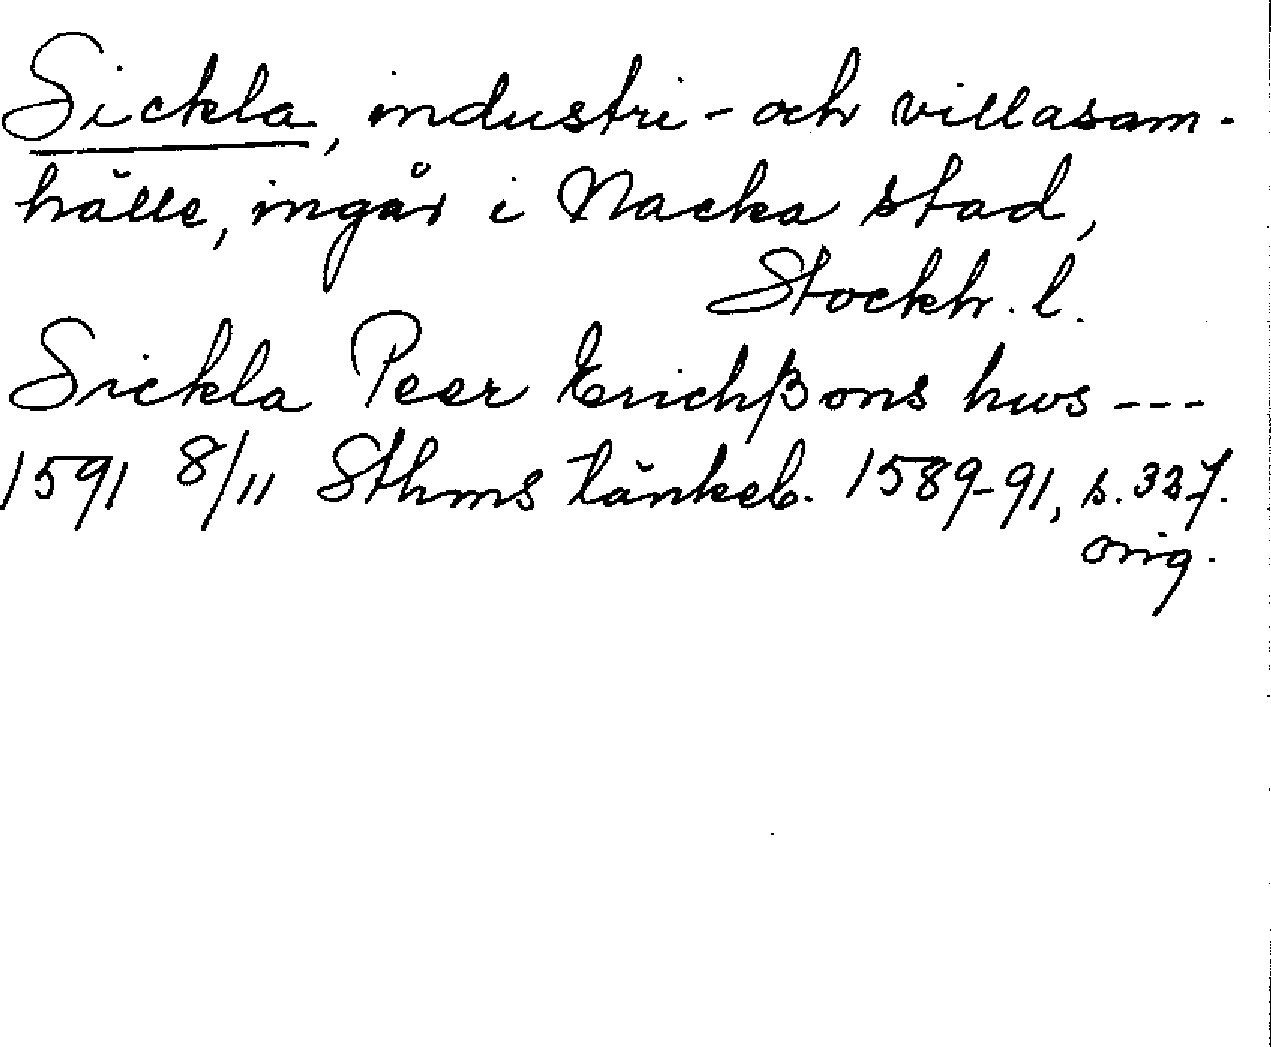 Sickla, industri- och villasam-
hälle, ingår i Nacka stad,
Stockh. l.
Sickla Peer Erichßons hws ---
1591 8/11 Sthms tänkeb. 1589-91, s. 327.
orig.